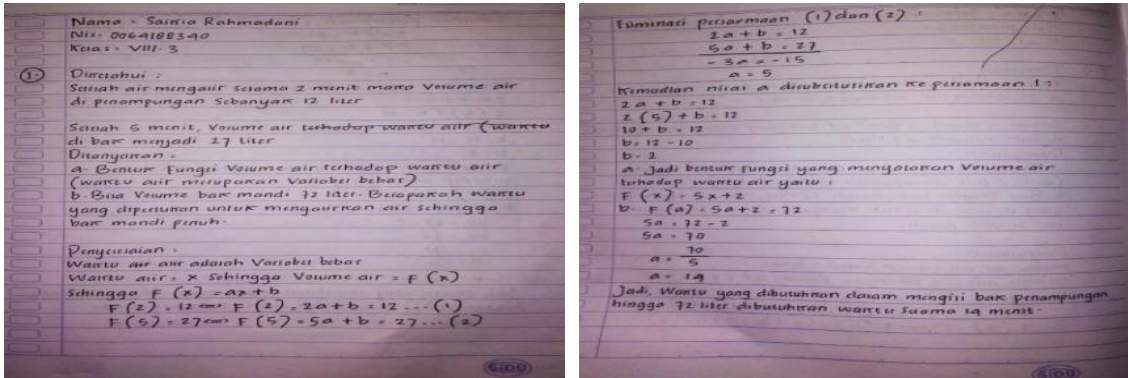 Nama : Sainia Rahmadani
Nis : 0064188340
Kelas : VIII. 3
1. Diketahui :
Setelah air mengalir selama 2 menit maka Volume air
di penampungan Sebanyak 12 liter
Setelah 5 menit, Volume air terhadap waktu alir (waktu
di bak menjadi 27 Liter
Ditanyakan :
a. Bentuk Fungsi Volume air terhadap waktu alir
(waktu alir merupakan Variabel bebas)
b. Bila Volume bak mandi 72 liter. Berapakah waktu
yang diperlukan untuk mengalirkan air sehingga
bak mandi penuh.
Penyelesaian :
Waktu air alir adalah Variabel bebas
Waktu alir = x Sehingga Volume air = F (x)
Sehingga F (x) = ax + b
F (2) = 12 ⇔ F (2) = 2a + b = 12 ... (1)
F (5) = 27 ⇔ F (5) = 5a + b = 27 ... (2)
SIDU
Eliminasi persamaan (1) dan (2) :
2a + b = 12
5a + b = 27
- 3a = - 15
a = 5
Kemudian nilai a disubstitusikan ke persamaan 1 :
2a + b = 12
2 (5) + b = 12
10 + b = 12
b = 12 - 10
b = 2
a. Jadi bentuk fungsi yang menyatakan Volume air
terhadap waktu air yaitu :
F (x) = 5x + 2
b. F (a) = 5a + 2 = 72
5a = 72 - 2
5a = 70
a = 70/5
a = 14
Jadi, Waktu yang dibutuhkan dalam mengisi bak penampungan
hingga 72 liter dibutuhkan waktu Selama 14 menit.
SIDU